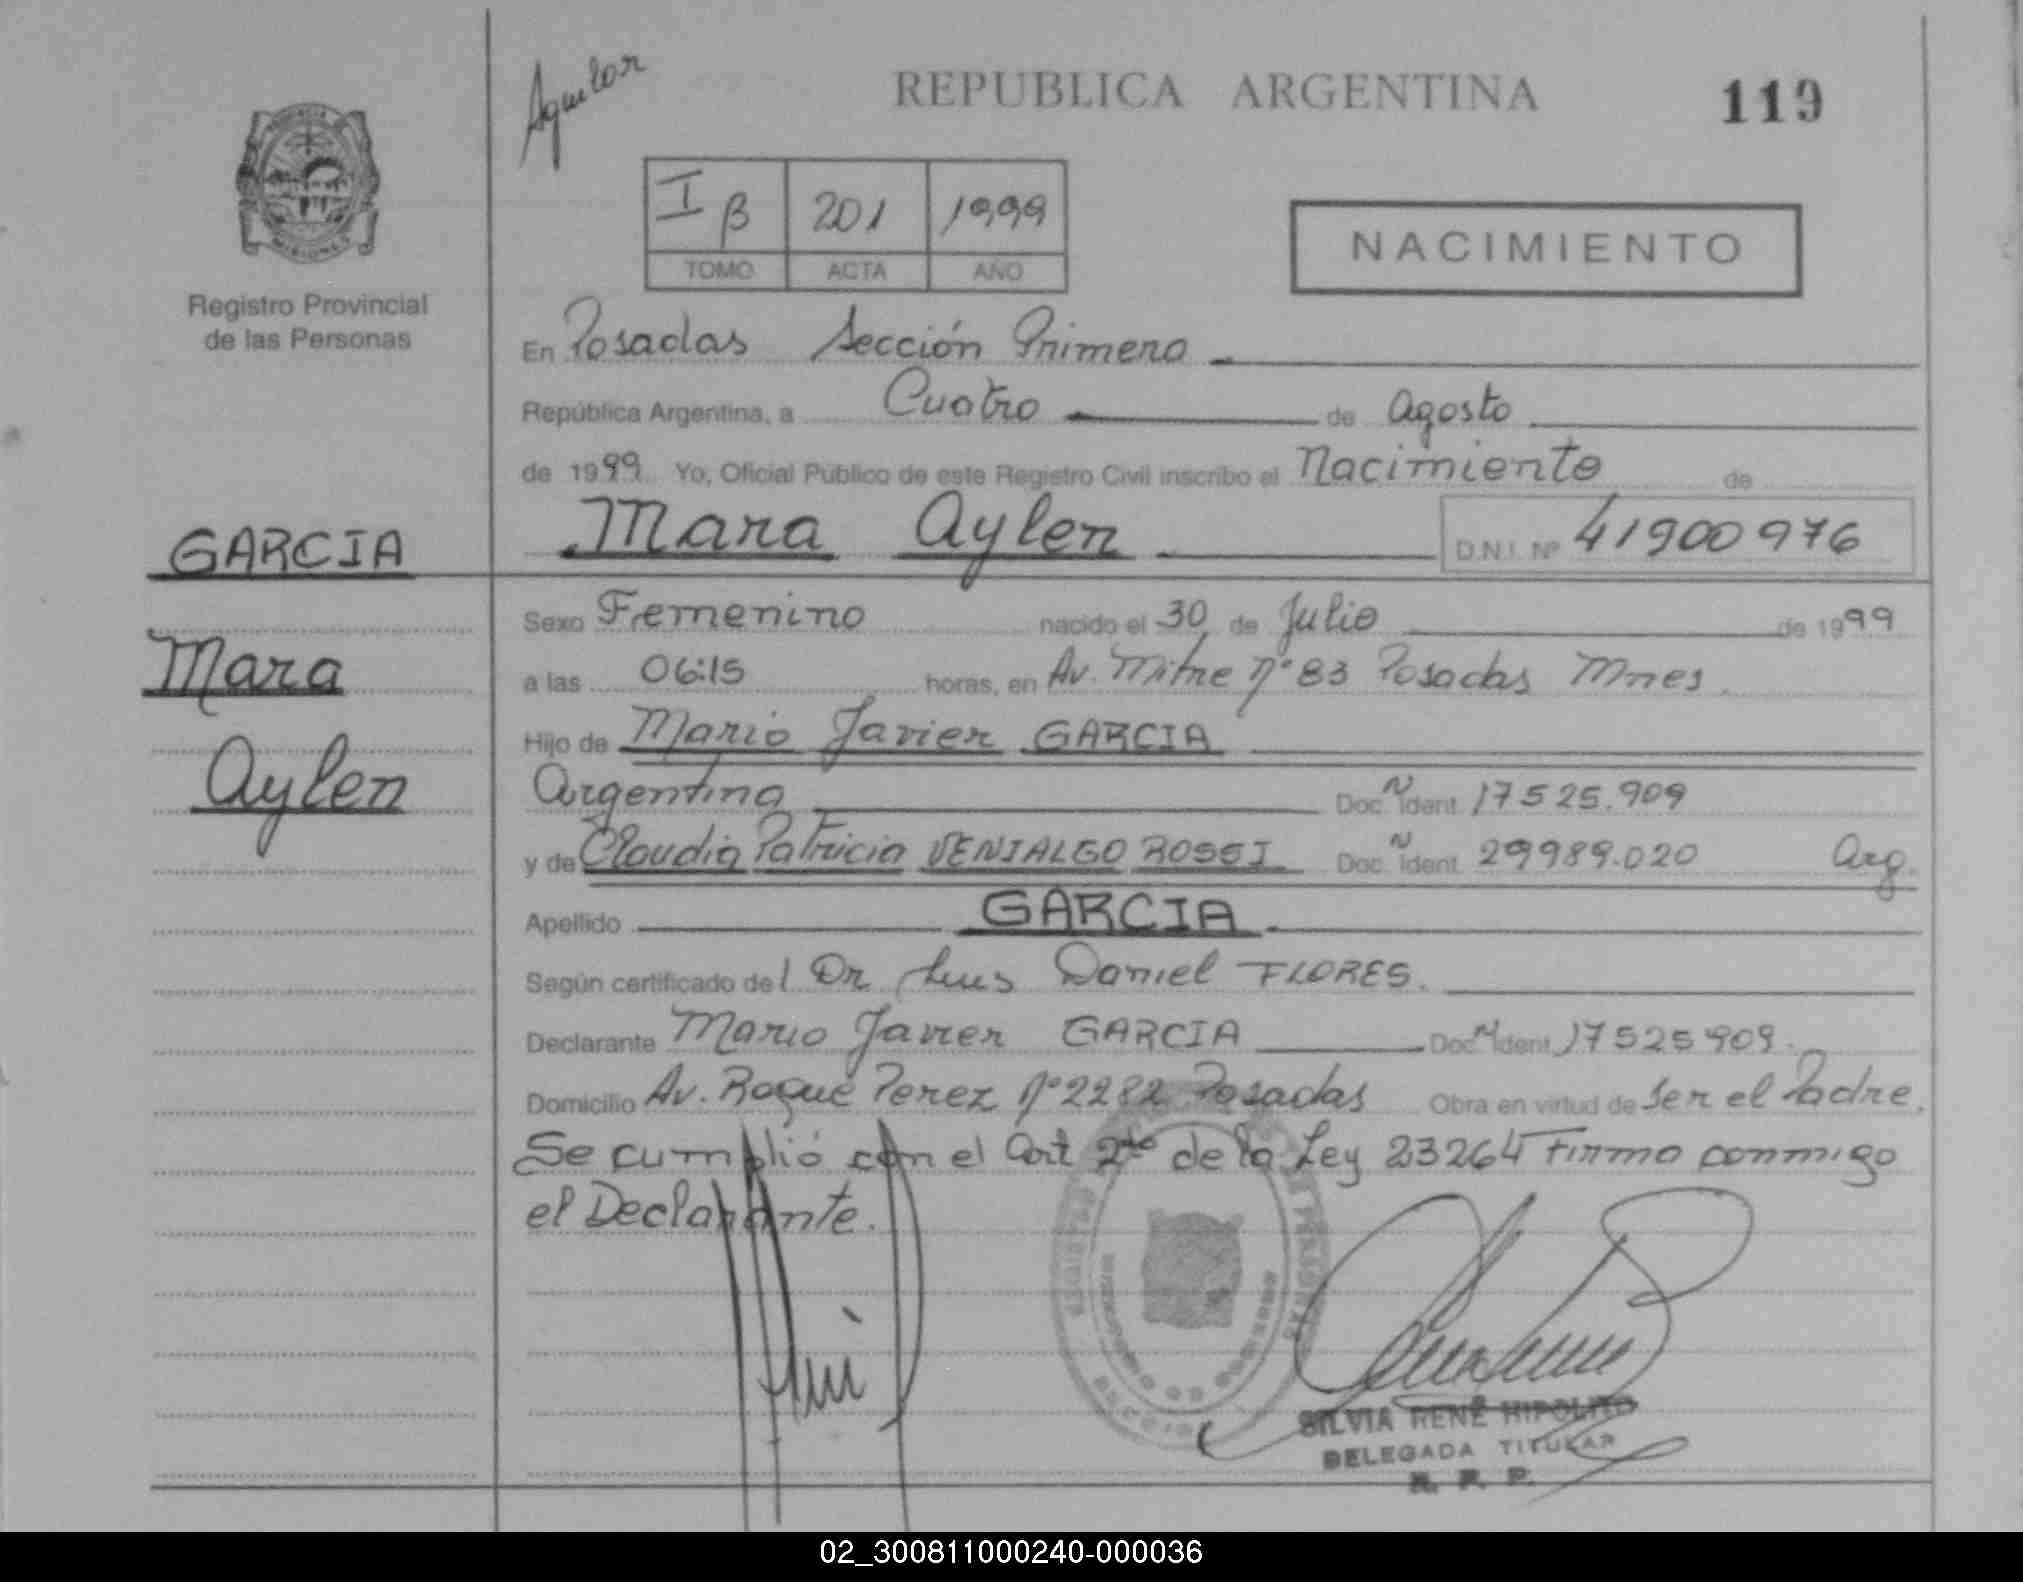 Aguilar
REPUBLICA ARGENTINA
119
I B 201 1999
TOMO ACTA AÑO
NACIMIENTO
MISIONES
Registro Provincial
de las Personas
En Posadas Sección Primera
República Argentina, a Cuatro de Agosto
de 1999 Yo, Oficial Público de este Registro Civil inscribo el Nacimiento de
Mara Aylen D.N.I. Nº 41900976
GARCIA
Mara
Aylen
Sexo Femenino nacido el 30 de Julio de 1999
a las 06:15 horas, en Av. Mitre Nº 83 Posadas Mnes.
Hijo de Mario Javier GARCIA
Argentina Doc. N Ident. 17525.909
y de Claudia Patricia VENIALGO ROSSI Doc. N Ident. 29989.020 Arg.
Apellido GARCIA
Según certificado del Dr Luis Daniel FLORES.
Declarante Mario Javier GARCIA Doc. N Ident. 17525909.
Domicilio Av. Roque Perez Nº 2282 Posadas Obra en virtud de ser el Padre.
Se cumplió con el Art 2do de la Ley 23264 Firma conmigo
el Declarante.
SILVIA RENÉ HIPOLITO
DELEGADA TITULAR
R. P. P.
02_300811000240-000036